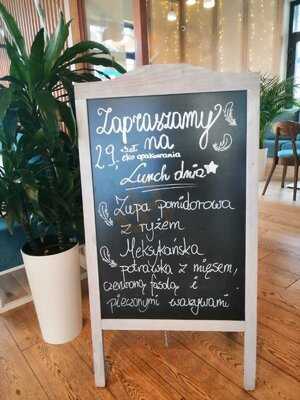 Zapraszamy
na
29,- +3zł eko opakowania
Lunch dnia
Zupa pomidorowa
z ryżem
Meksykańska
potrawka z mięsem,
czerwoną fasolą i
pieczonymi warzywami